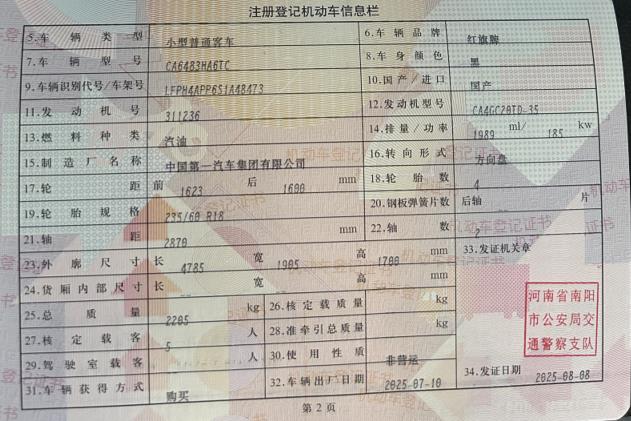 注册登记机动车信息栏
5.车辆类型 小型普通客车 6.车辆品牌 红旗牌
7.车辆型号 CA6483HA6TC 8.车身颜色 黑
9.车辆识别代号/车架号 LFPH4APP6S1A48473 10.国产/进口 国产
11.发动机号 311236 12.发动机型号 CA4GC20TD-35
13.燃料种类 汽油 14.排量/功率 1989 ml/ 185 kw
15.制造厂名称 中国第一汽车集团有限公司 16.转向形式 方向盘
17.轮距 前 1623 后 1600 mm 18.轮胎数 4
19.轮胎规格 235/60 R18 20.钢板弹簧片数 后轴 片
21.轴距 2870 mm 22.轴数 2
23.外廓尺寸 长 4785 宽 1905 高 1700 mm 33.发证机关章
24.货厢内部尺寸 长 -- 宽 -- 高 -- mm
25.总质量 2205 kg 26.核定载质量 kg
27.核定载客 5 人 28.准牵引总质量 kg
29.驾驶室载客 人 30.使用性质 非营运
31.车辆获得方式 购买 32.车辆出厂日期 2025-07-10 34.发证日期 2025-08-08
河南省南阳
市公安局交
通警察支队
第2页